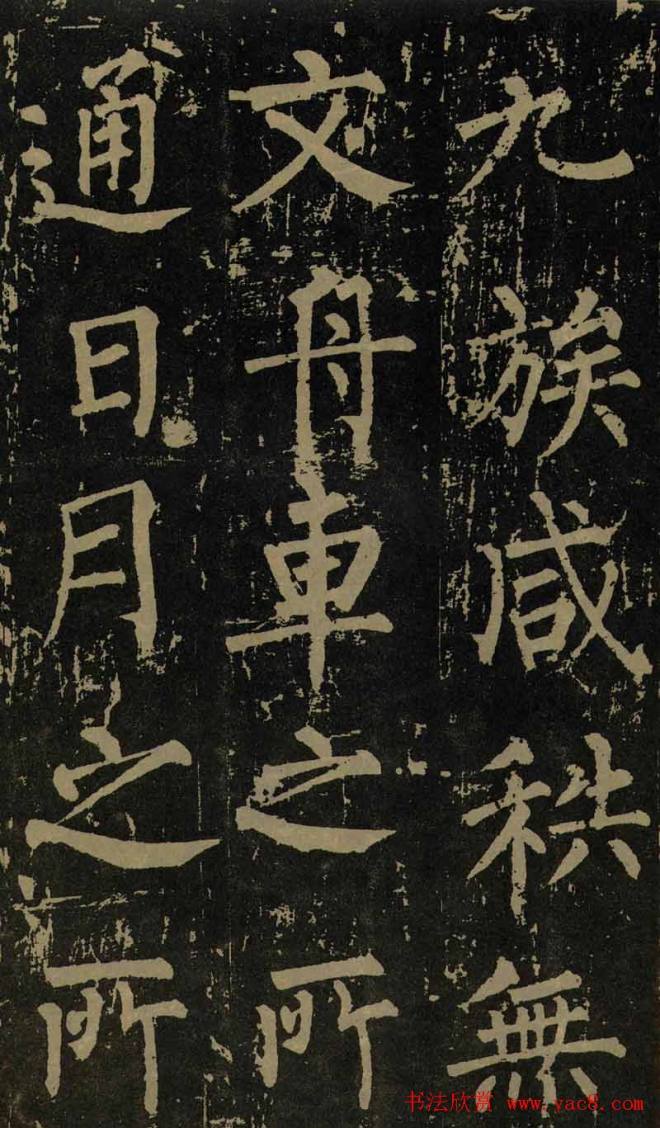 九族咸秩無
文舟車之所
通日月之所
书法欣赏 www.yac8.com